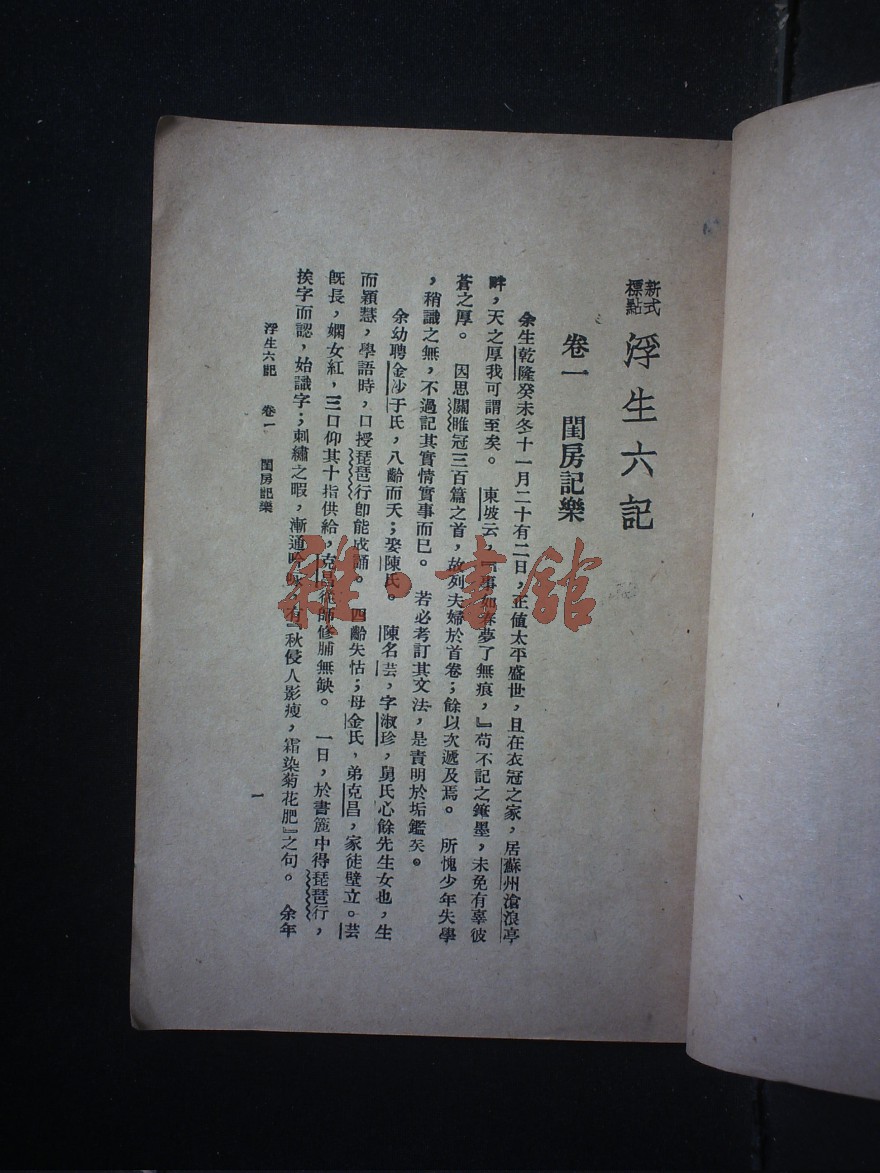 新式標點 浮生六記
卷一 閨房記樂
余生乾隆癸未冬十一月二十有二日，正値太平盛世，且在衣冠之家，居蘇州滄浪亭
畔，天之厚我可謂至矣。東坡云，『事如春夢了無痕，』苟不記之筆墨，未免有辜彼
蒼之厚。因思關雎冠三百篇之首，故列夫婦於首卷；餘以次遞及焉。所愧少年失學
，稍識之無，不過記其實情實事而已。若必考訂其文法，是責明於垢鑑矣。
余幼聘金沙于氏，八齡而夭；娶陳氏。陳名芸，字淑珍，舅氏心餘先生女也，生
而穎慧，學語時，口授琵琶行卽能成誦。四齡失怙；母金氏，弟克昌，家徒壁立。芸
旣長，嫻女紅，三口仰其十指供給，克昌從師修脯無缺。一日，於書簏中得琵琶行，
挨字而認，始識字；刺繡之暇，漸通吟咏，有『秋侵人影瘦，霜染菊花肥』之句。余年
浮生六記 卷一 閨房記樂
一
雜·書館